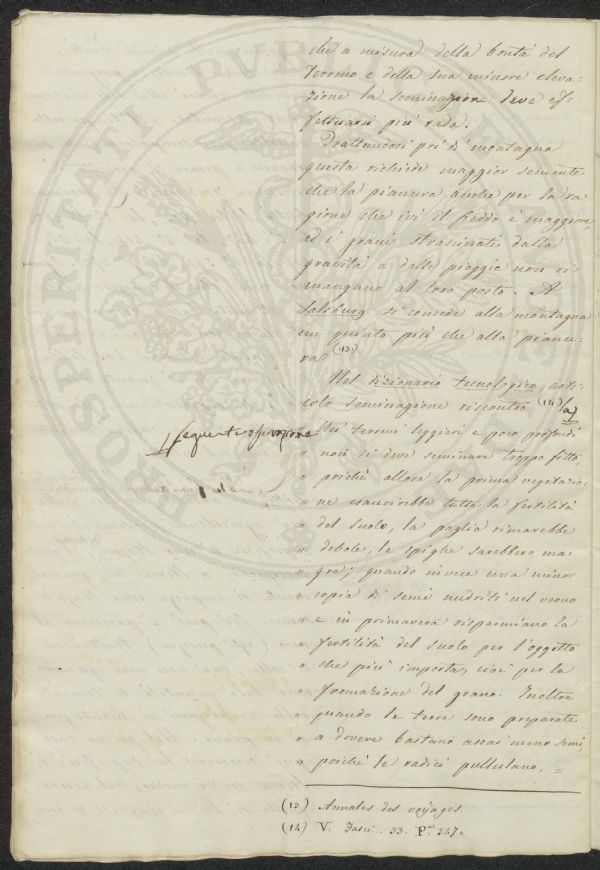 che a misura della bontà del
terreno e della sua minore eleva=
zione la seminagione deve ef=
fettuarsi più rada.
Trattandosi poi di montagna
questa richiede maggior semente
che la pianura anche per la ra=
gione che ivi il freddo è maggiore,
ed i grani strascinati dalla
gravità e dalle pioggie non ri=
mangono al loro posto. A
Salzburg si concede alla montagna
un quinto più che alla pianu=
ra (13.)
Nel dizionario tecnologico, arti=
colo seminagione riscontro (14) la
seguente osservazione
" Nei terreni leggieri e poco profondi
" non si deve seminare troppo fitto,
" poichè allora la prima vegetazio=
" ne esaurirebbe tutta la fertilità
" del suolo, la paglia rimarebbe
" debole, le spighe sarebbero ma=
" gre; quando invece una minor
" copia di semi nudriti nel verno
" e in primavera risparmiano la
" fertilità del suolo per l'oggetto
" che più importa, cioè per la
" formazione del grano. Inoltre
" quando le terre sono preparate
" a dovere bastano assai meno semi,
" poichè le radici pullulano, =
(13) Annales des voyages.
(14) V. Fasci. 33. P. 347.
PROSPERITATI PVBLICAE